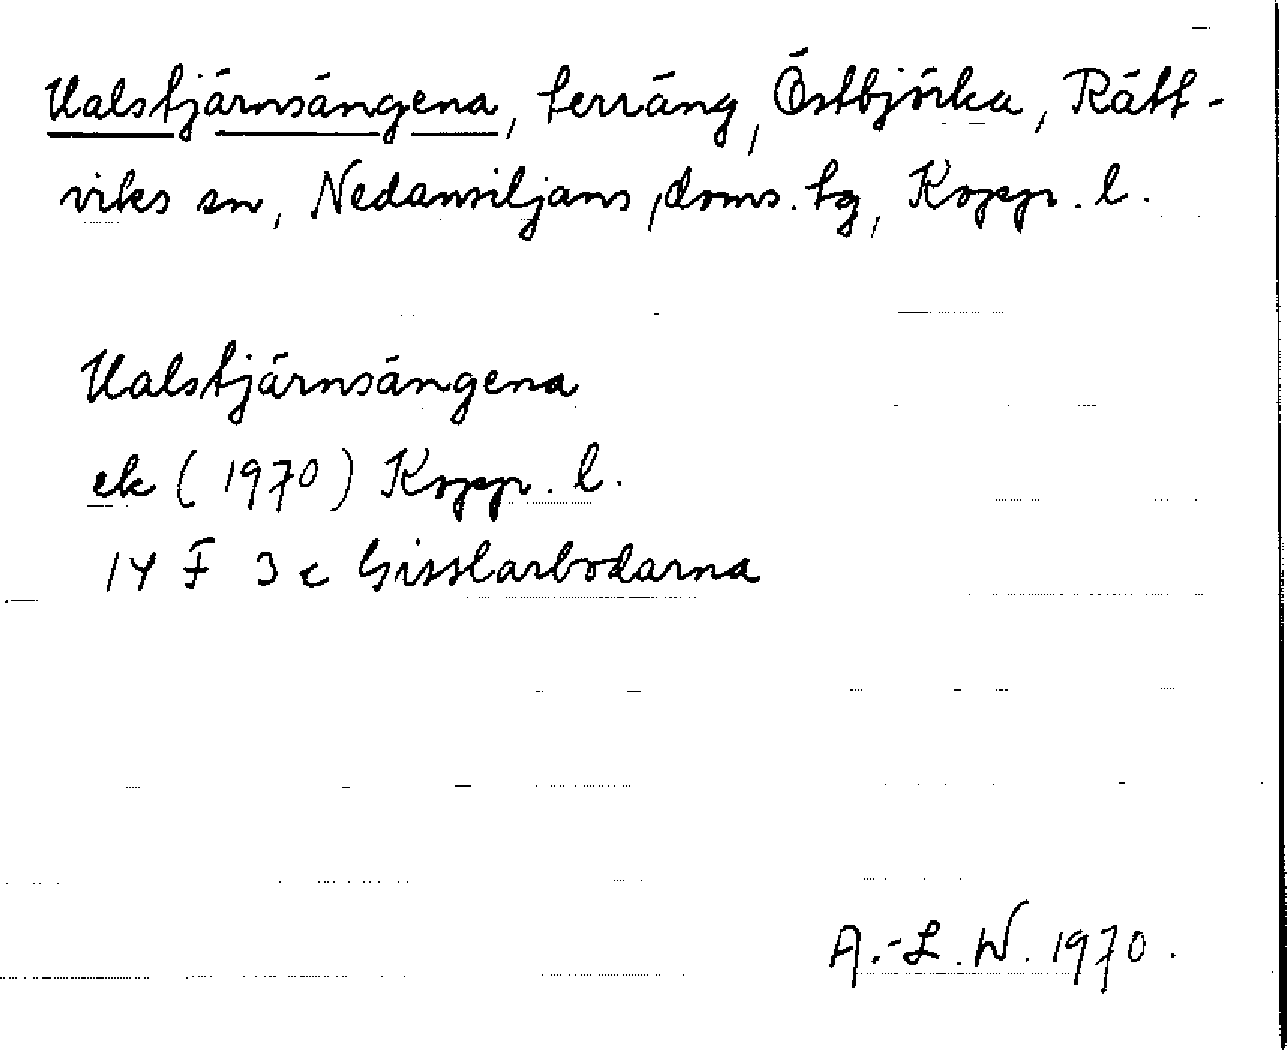 Valstjärnsängena, terräng, Östbjörka, Rätt-
viks sn, Nedansiljans doms. tg, Kopp. l.
Valstjärnsängena
ek (1970) Kopp. l.
14 F 3 c Gisslarbodarna
A.-L. W. 1970.